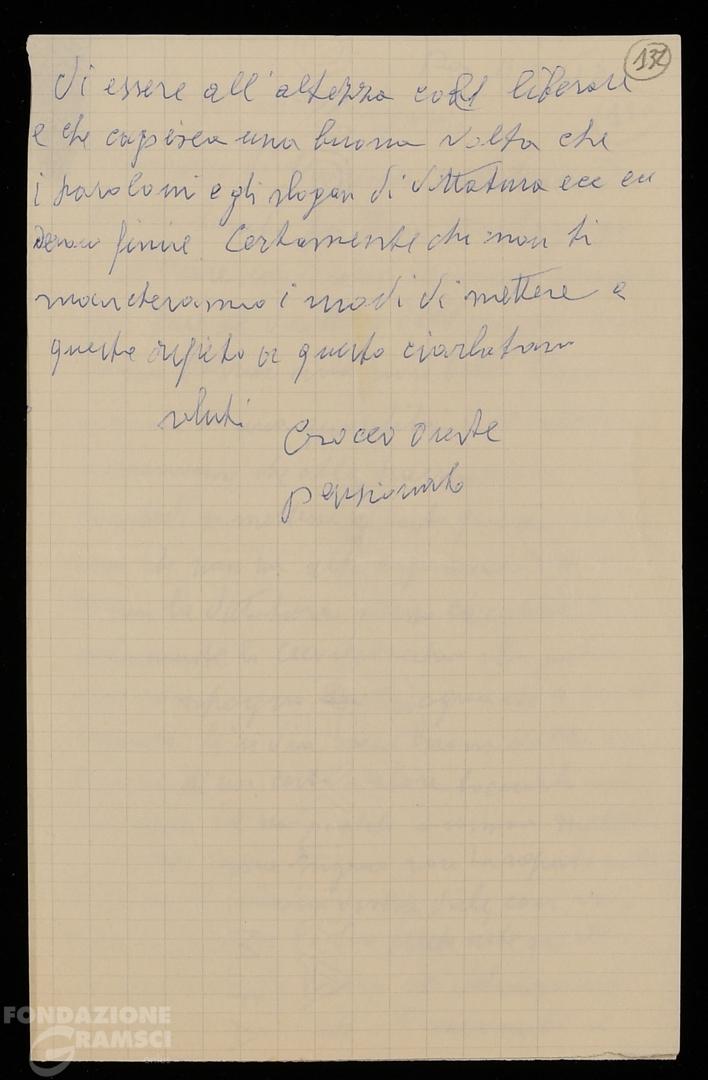 132
di essere all'altezza coi liberali
e che capisca una buona volta che
i paroloni e gli slogan di dittatura ecc ecc
devono finire Certamente che non ti
mancheranno i modi di mettere a
questo questo ciarlatano
saluti
Crocco Oreste
pensionato
FONDAZIONE
GRAMSCI